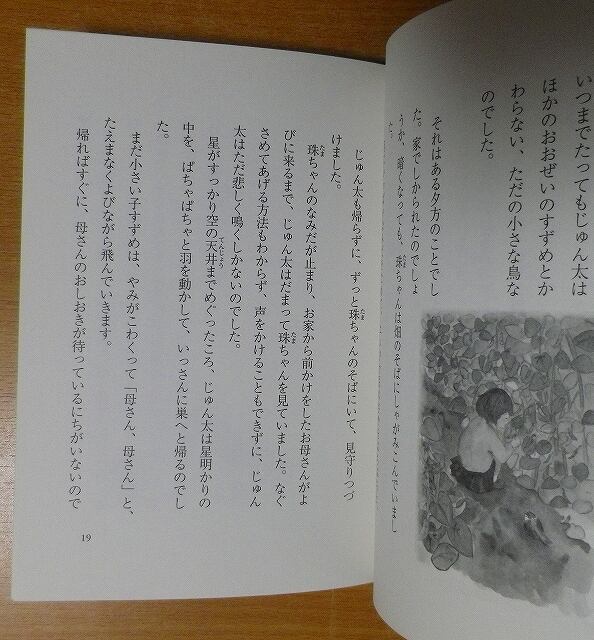 いつまでたってもじゅん太は
ほかのおおぜいのすずめとか
わらない、ただの小さな鳥な
のでした。
それはある夕方のことでし
た。家でしかられたのでしょ
うか、暗くなっても、珠ちゃんは畑のそばにしゃがみこんでいまし
た。
じゅん太も帰らずに、ずっと珠ちゃんのそばにいて、見守りつづ
けました。
珠ちゃんのなみだが止まり、お家から前かけをしたお母さんがよ
びに来るまで、じゅん太はだまって珠ちゃんを見ていました。なぐ
さめてあげる方法もわからず、声をかけることもできずに、じゅん
太はただ悲しく鳴くしかないのでした。
星がすっかり空の天井までめぐったころ、じゅん太は星明かりの
中を、ぱちゃぱちゃと羽を動かして、いっさんに巣へと帰るのでし
た。
まだ小さい子すずめは、やみがこわくって「母さん、母さん」と、
たえまなくよびながら飛んでいきます。
帰ればすぐに、母さんのおしおきが待っているにちがいないので
19